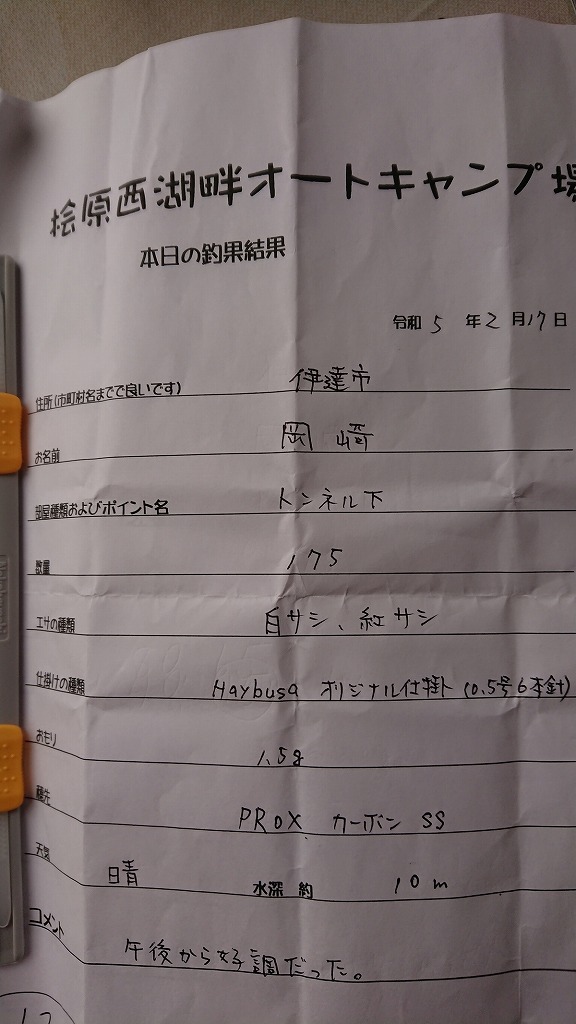 桧原西湖畔オートキャンプ場
本日の釣果結果
令和 5 年 2 月 17 日
住所(市町村名までで良いです) 伊達市
お名前 岡﨑
部屋種類およびポイント名 トンネル下
数量 175
エサの種類 白サシ、紅サシ
仕掛けの種類 Haybusa オリジナル仕掛 (0.5号6本針)
おもり 1.5g
穂先 PROX カーボン SS
天気 晴 水深 約 10m
コメント 午後から好調だった。